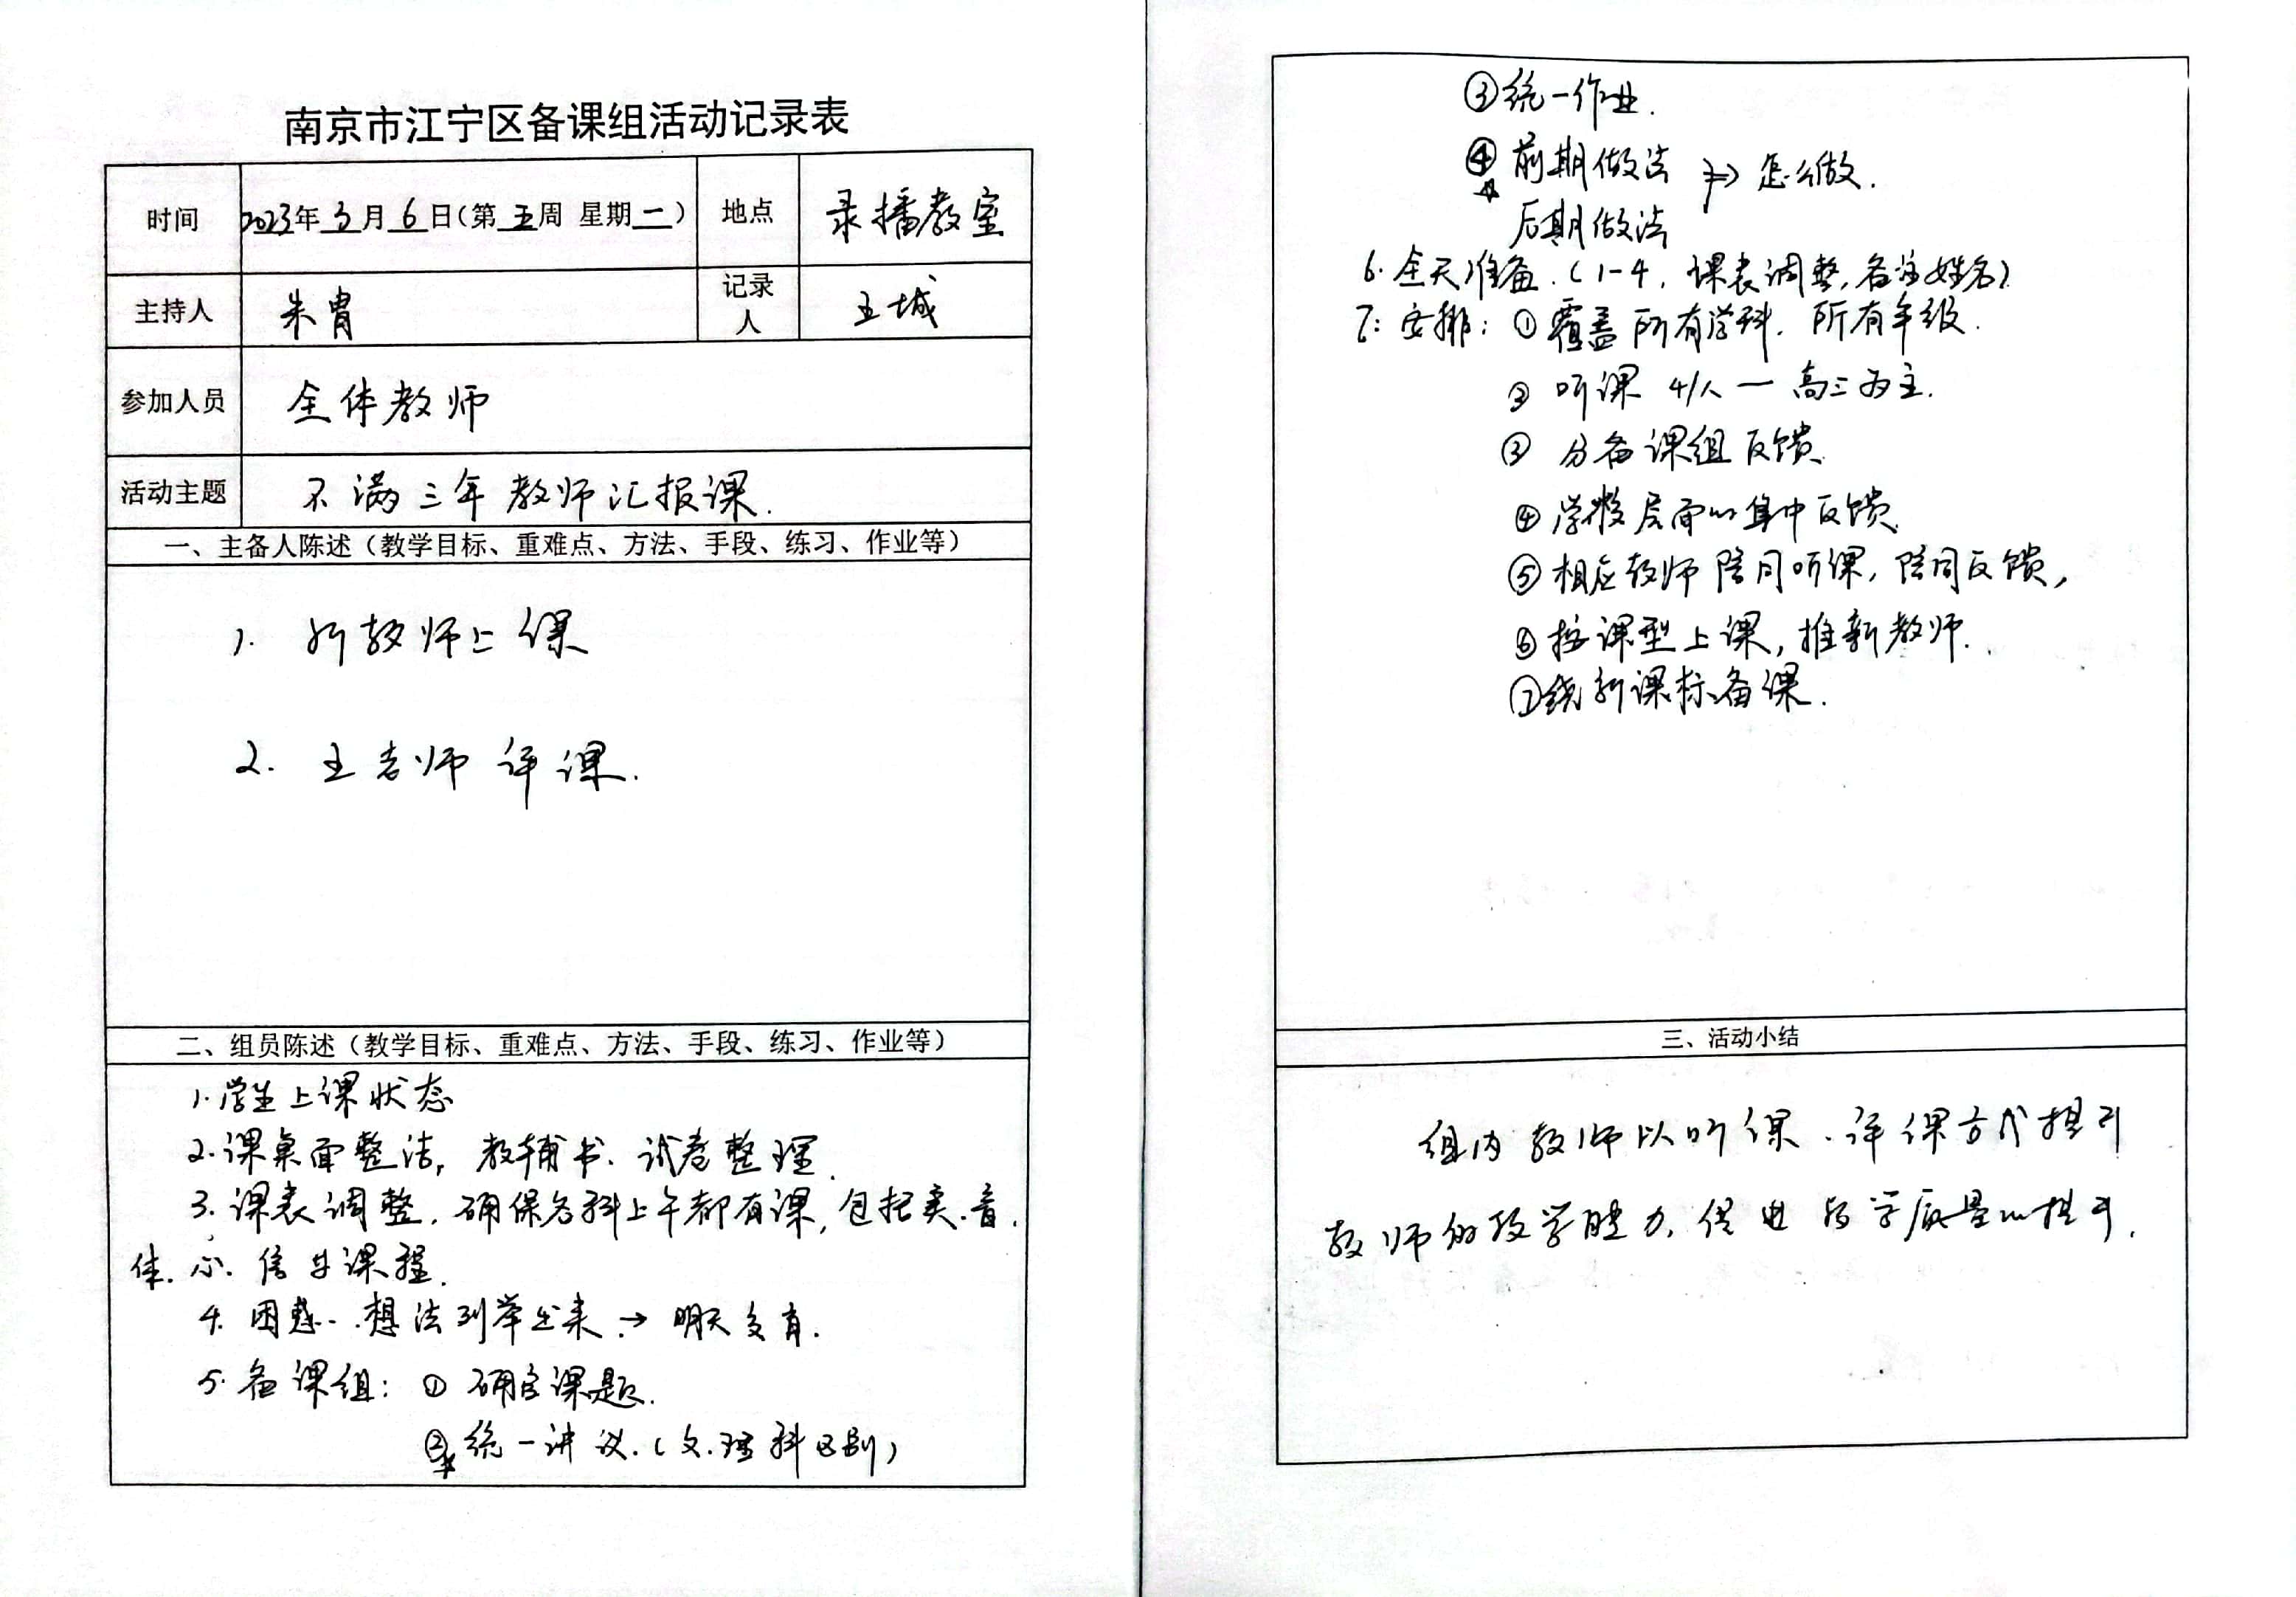 南京市江宁区备课组活动记录表
时间 2023年3月6日(第五周 星期二) 地点 录播教室
主持人 朱胄 记录人 王城
参加人员 全体教师
活动主题 不满三年教师汇报课.
一、主备人陈述(教学目标、重难点、方法、手段、练习、作业等)
1. 新教师上课
2. 王老师评课.
二、组员陈述(教学目标、重难点、方法、手段、练习、作业等)
1.学生上课状态
2.课桌面整洁, 教辅书、试卷整理.
3.课表调整, 确保各科上午都有课, 包括美.音.
体. 心. 信等课程.
4. 困惑、想法列举出来 → 明天交肖.
5.备课组: ① 确定课题.
② 统一讲议.(文.理科区别)
③统一作业.
④ 前期做法 => 怎么做.
后期做法
6.全天准备.(1-4, 课表调整,备注姓名)
7: 安排: ①覆盖所有学科. 所有年级.
② 听课 4/人 — 高三为主.
③ 分备课组反馈
④学校层面的集中反馈
⑤相应教师陪同听课, 陪同反馈,
⑥按课型上课, 推新教师.
⑦绕新课标备课.
三、活动小结
组内教师以听课、评课方式提升
教师的教学能力, 促进教学质量的提升.